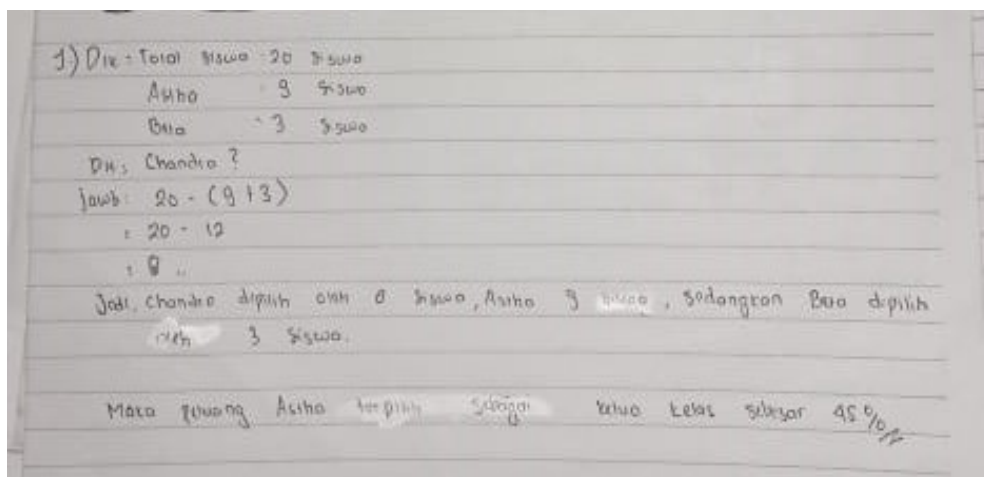 1) Dik = Total siswa = 20 siswa
Astha = 9 siswa
Bela = 3 siswa
Dit : Chandra ?
jawb : 20 - (9 + 3)
= 20 - 12
= 8 „
Jadi, Chandra dipilih oleh 8 siswa, Astha 9 siswa, sedangkan Bela dipilih
oleh 3 siswa.
Maka peluang Astha terpilih sebagai ketua kelas sebesar 45 %